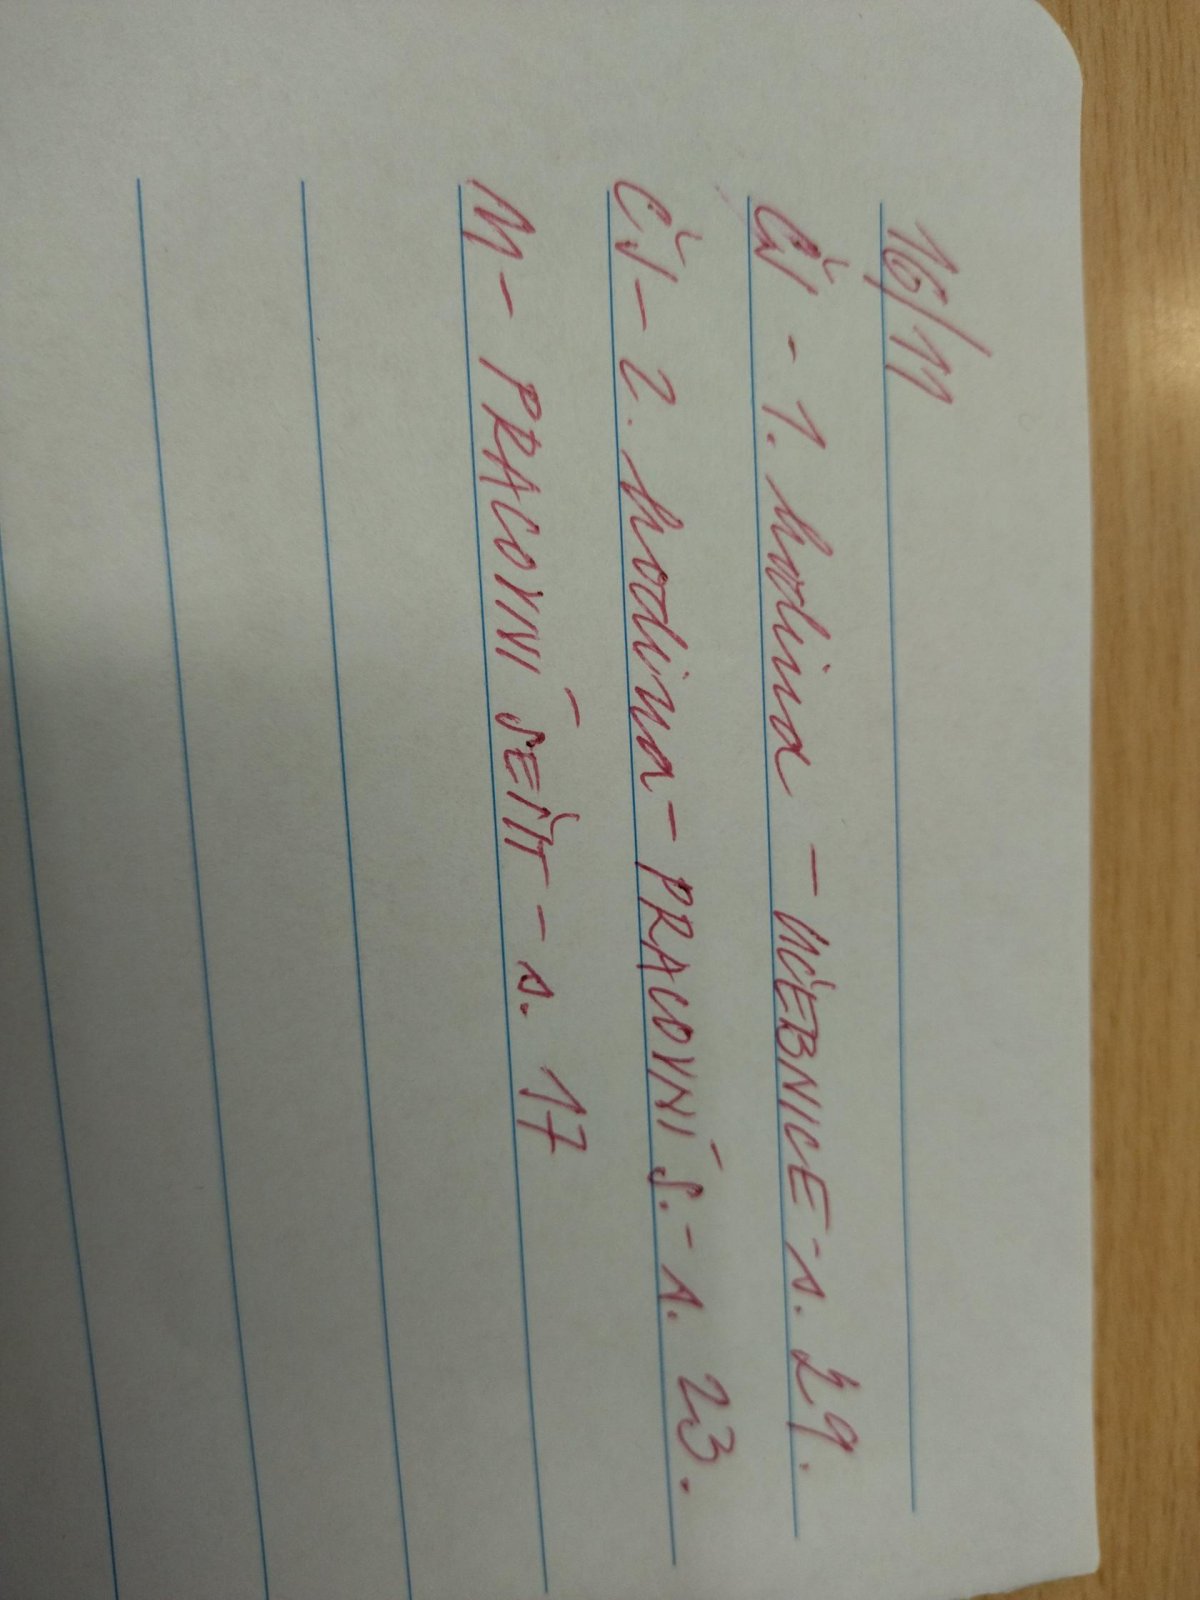 16/11
ČJ - 1. hodina - UČEBNICE - s. 29.
ČJ - 2. hodina - PRACOVNÍ S. - s. 23.
M - PRACOVNÍ SEŠIT - s. 17